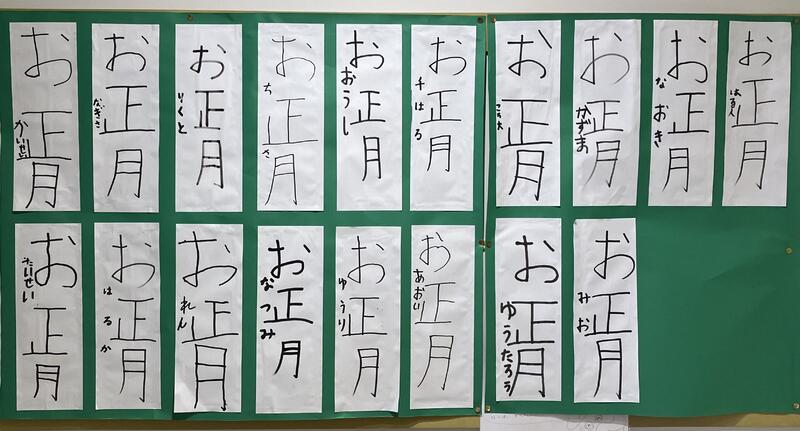 お正月
かいせい
お正月
なぎさ
お正月
りくと
お正月
ちさ
お正月
おうし
お正月
千はる
お正月
お正月
かずま
お正月
なおき
お正月
はる人
お正月
たいせい
お正月
はるか
お正月
れん
お正月
なつみ
お正月
ゆうり
お正月
あおい
お正月
ゆうたろう
お正月
みお